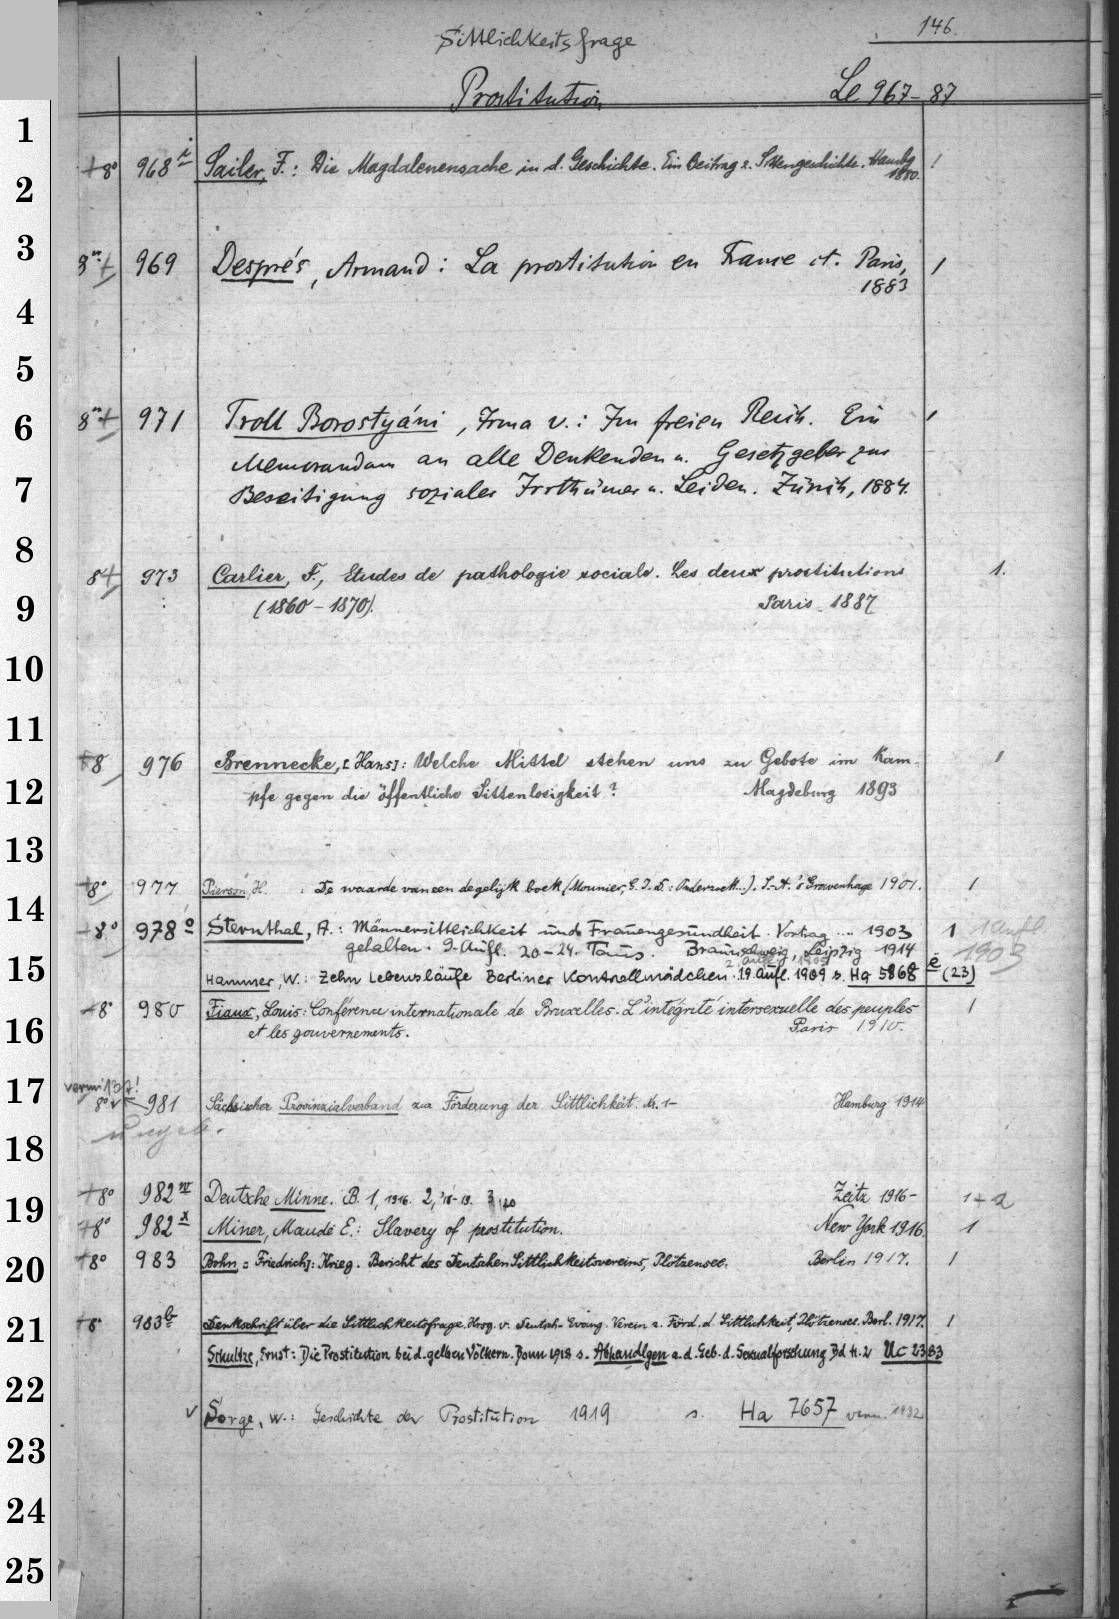 146.
Sittlichkeitsfrage
Prostitution
Le 967-87
+8° 968 i Sailer, F.: Die Magdalenensache in d. Geschichte. Ein Beitrag z. Sittengeschichte. Hambg 1
1880.
969 Després, Armand: La prostitution en France et. Paris, 1
1883
971 Troll Borostyáni, Irma v.: Im freien Reich. Ein 1
Memorandum an alle Denkenden u. Gesetzgeber zur
Beseitigung sozialer Irrthümer u. Leiden. Zürich, 1884.
8+ 973 Carlier, F., Etudes de pathologie sociale. Les deux prostitutions 1.
(1860-1870). Paris 1887
+8 976 Brennecke, [Hans]: Welche Mittel stehen uns zu Gebote im Kam- 1
pfe gegen die öffentliche Sittenlosigkeit? Magdeburg 1893
+8° 977 Pierson, H. : De waarde van een degelijk boek (Mounier, 's Gravenhage 1901. 1
+8° 978 o Sternthal, A.: Männersittlichkeit und Frauengesundheit. Vortrag ... 1903 1 1 Aufl
gehalten. 9. Aufl. 20-24. Taus. Braunschweig, Leipzig 1914 1903
Hammer, W.: Zehn Lebensläufe Berliner Kontrollmädchen. 19. Aufl. 1909 s. Ha 5868 e (23)
+8° 980 Fiaux, Louis: Conférence internationale de Bruxelles. L'intégrité intersexuelle des peuples 1
et les gouvernements. Paris 1910.
8° 981 Sächsischer Provinzialverband zur Förderung der Sittlichkeit. N. 1- Hamburg 1914
+8° 982 w Deutsche Minne. B. 1, 1916. 2, '18-19. 3, 20 Zeitz 1916- 1+2
+8° 982 x Miner, Maude E.: Slavery of prostitution. New York 1916. 1
+8° 983 Bohn = Friedrich]: Krieg. Bericht des Deutschen Sittlichkeitsvereins, Plötzensee. Berlin 1917. 1
+8° 983 b Denkschrift über die Sittlichkeitsfrage. Hrsg. v. Deutsch-Evang. Verein z. Förd. d. Sittlichkeit, Plötzensee. Berl. 1917. 1
Schultze, Ernst: Die Prostitution bei d. gelben Völkern. Bonn 1918 s. Abhandlgen a. d. Geb. d. Sexualforschung Bd 1. H. 2 Uc 2383
Sorge, W.: Geschichte der Prostitution 1919 s. Ha 7657 verm. 1932
1
2
3
4
5
6
7
8
9
10
11
12
13
14
15
16
17
18
19
20
21
22
23
24
25